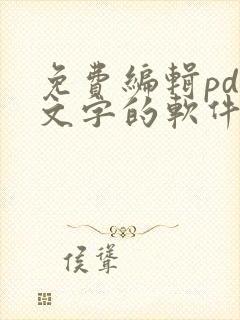 免費編輯pd
文字的軟件
侯聳